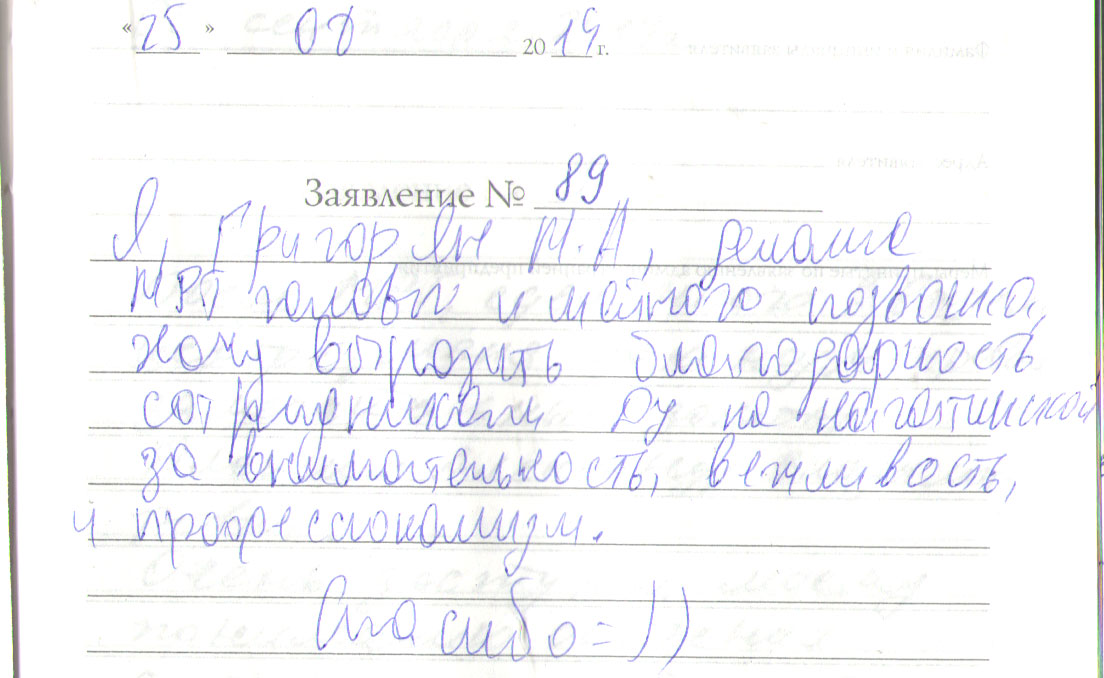 «25» 08 2014 г.
Заявление № 89
Я, Григорян М.А, делала
МРТ головы и шейного позвонка,
хочу выразить благодарность
сотрудникам ДУ на нагатинской
за внимательность, вежливость,
и профессионализм.
Спасибо =))